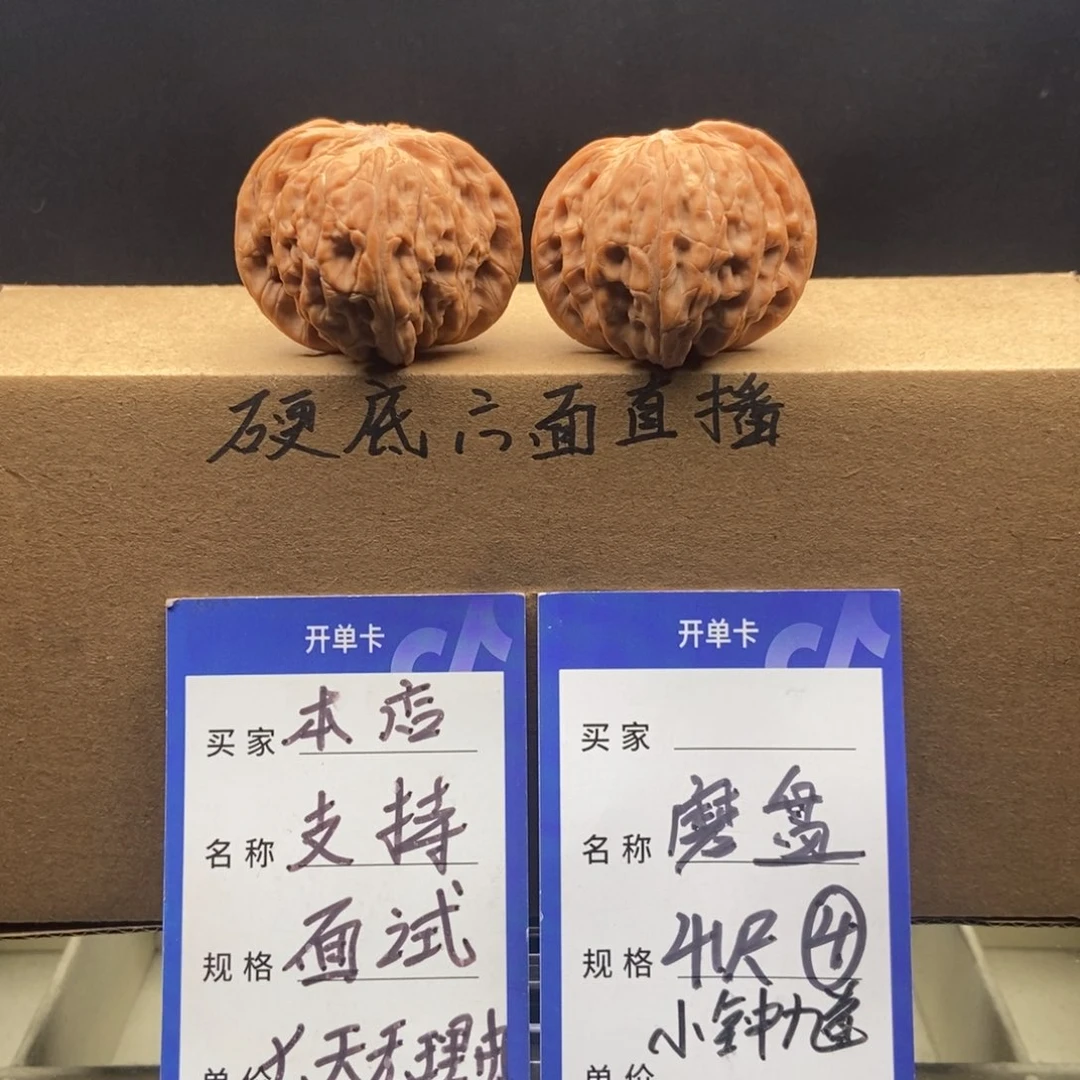 硬底六面直播
开单卡
买家 本店
名称 支持
规格 面试
单价 七天无理由
开单卡
买家
名称 磨盘
规格 4尺 ④
小钟九道
单价